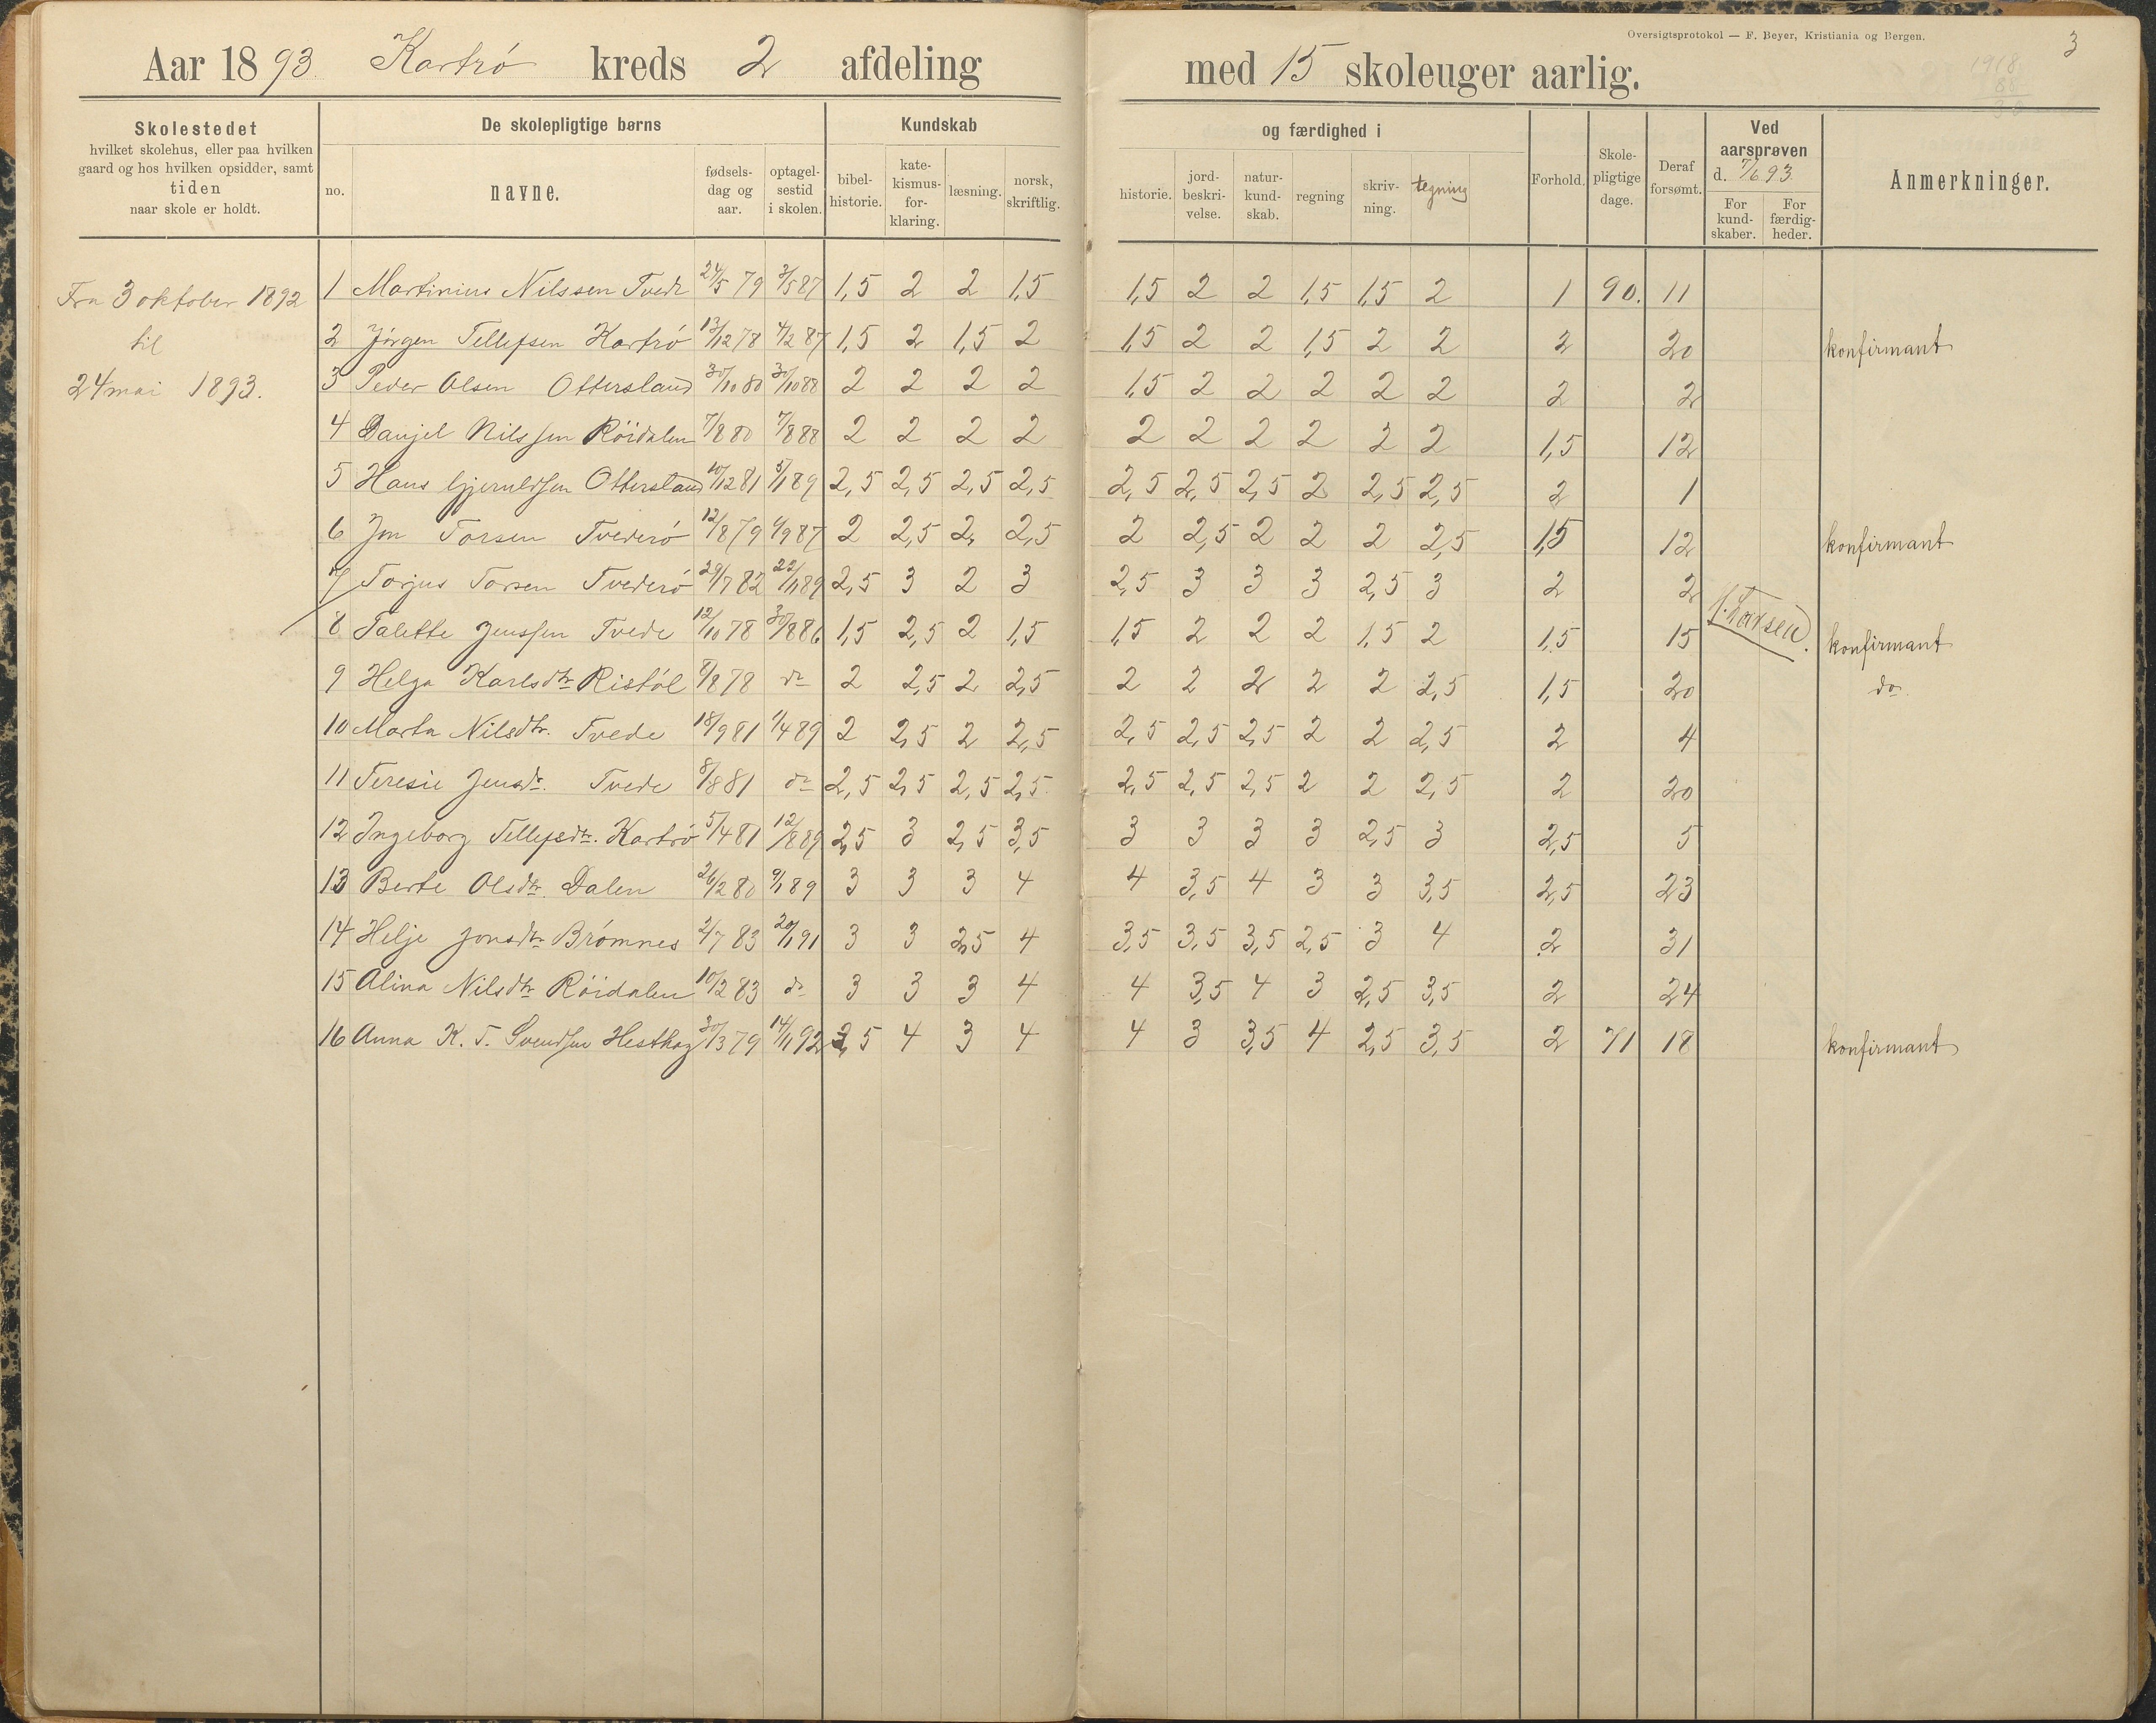 Oversigtsprotokol — F. Beyer, Kristiania og Bergen.
3
1918
88
30
Aar 1893 Kartrø kreds 2 afdeling med 15 skoleuger aarlig.
Skolestedet
hvilket skolehus, eller paa hvilken
gaard og hos hvilken opsidder, samt
tiden
naar skole er holdt.
De skolepligtige børns
no.
navne.
fødsels-
dag og
aar.
optagel-
sestid
i skolen.
Kundskab
bibel-
historie.
kate-
kismus-
for-
klaring.
læsning.
norsk,
skriftlig.
og færdighed i
historie.
jord-
beskri-
velse.
natur-
kund-
skab.
regning
skriv-
ning.
tegning
Forhold.
Skole-
pligtige
dage.
Deraf
forsømt.
Ved
aarsprøven
d. 7/6 93.
For
kund-
skaber.
For
færdig-
heder.
Anmerkninger.
Fra 3 oktober 1892
til
24 mai 1893.
1 Martinius Nilssen Tvede 24/5 79 3/5 87 1,5 2 2 1,5 1,5 2 2 1,5 1,5 2 1 90. 11
2 Jørgen Tellefsen Kartrø 13/12 78 4/2 87 1,5 2 1,5 2 1,5 2 2 1,5 2 2 2 20 konfirmant
3 Peder Olsen Ottersland 30/10 80 30/10 88 2 2 2 2 1,5 2 2 2 2 2 2 2
4 Danjel Nilssen Röidalen 7/8 80 7/8 88 2 2 2 2 2 2 2 2 2 2 1,5 12
5 Hans Gjeruldsen Ottersland 10/12 81 5/1 89 2,5 2,5 2,5 2,5 2,5 2,5 2,5 2 2,5 2,5 2 1
6 Jon Torsen Tvederø 12/8 79 1/9 87 2 2,5 2 2,5 2 2,5 2 2 2 2,5 1,5 12 konfirmant
7 Torjus Torsen Tvederø 29/7 82 22/1 89 2,5 3 2 3 2,5 3 3 3 2,5 3 2 2
8 Talette Jenssen Tvede 12/10 78 30/8 86 1,5 2,5 2 1,5 1,5 2 2 2 1,5 2 1,5 15 konfirmant
9 Helga Karlsdtr Ristøl 8/8 78 do 2 2,5 2 2,5 2 2 2 2 2 2,5 1,5 20 do
10 Marta Nilsdtr. Tvede 18/9 81 1/4 89 2 2,5 2 2,5 2,5 2,5 2,5 2 2 2,5 2 4
11 Teresie Jensdr. Tvede 8/8 81 do 2,5 2,5 2,5 2,5 2,5 2,5 2,5 2 2 2,5 2 20
12 Ingeborg Tellefsdtr. Kartrø 5/4 81 12/8 89 2,5 3 2,5 3,5 3 3 3 3 2,5 3 2,5 5
13 Berte Olsdtr. Dalen 26/2 80 9/1 89 3 3 3 4 4 3,5 4 3 3 3,5 2,5 23
14 Helje Jonsdtr Brømnes 2/7 83 20/1 91 3 3 2,5 4 3,5 3,5 3,5 2,5 3 4 2 31
15 Alina Nilsdtr Röidalen 10/2 83 do 3 3 3 4 4 3,5 4 3 2,5 3,5 2 24
16 Anna K. T. Svendsen Hesthag 30/3 79 14/1 92 3,5 4 3 4 4 3 3,5 4 2,5 3,5 2 71 18 konfirmant